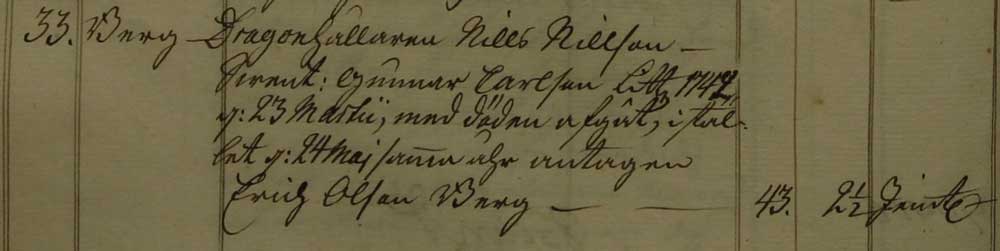 33. Berg Dragonhållaren Nills Nillson —
Gunnar Carlson 1742
d: 23 Martii, med döden afgåt, i stäl-
let d: 24 Maj samma åhr antagen
Erich Olson Berg — — 43. 2½ Jemt